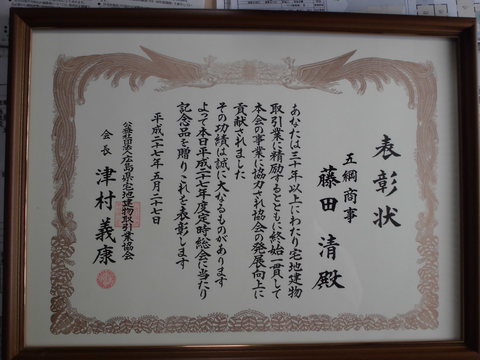 表彰状
五綱商事
藤田 清殿
あなたは三十年以上にわたり宅地建物
取引業に精励するとともに終始一貫して
本会の事業に協力され協会の発展向上に
貢献されました
その功績は誠に大なるものがあります
よって本日平成二十七年度定時総会に当たり
記念品を贈りこれを表彰します
平成二十七年五月二十七日
公益社団法人広島県宅地建物取引業協会
会長 津村義康